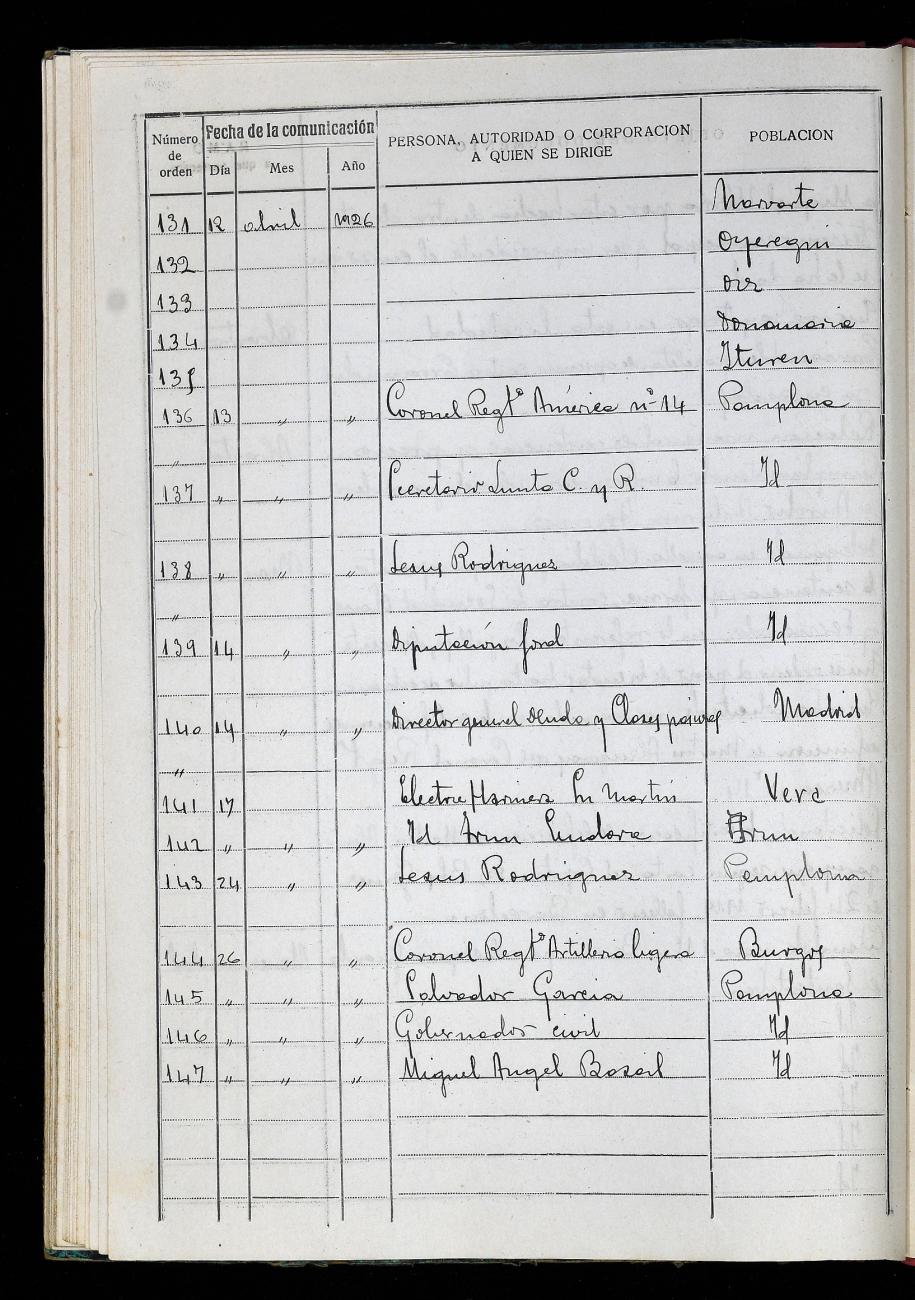 Número de orden | Fecha de la comunicación | PERSONA, AUTORIDAD O CORPORACION A QUIEN SE DIRIGE | POBLACION
Día | Mes | Año
131 | 12 | abril | 1926 | | Narvarte
132 | | | | | Oyeregui
133 | | | | | Oiz
134 | | | | | Donamaria
135 | | | | | Ituren
136 | 13 | " | " | Coronel Regtº América nº 14 | Pamplona
"
137 | " | " | " | Secretario Junta C. y R. | Id
138 | " | " | " | Jesus Rodriguez | Id
"
139 | 14 | " | " | Diputación foral | Id
140 | 14 | " | " | Director general Deuda y Clases pasivas | Madrid
"
141 | 17 | | | Electra Harinera Sn Martín | Vera
142 | " | " | " | Id Irun Endara | Irun
143 | 24 | " | " | Jesus Rodriguez | Pamplona
144 | 26 | " | " | Coronel Regtº Artilleria ligera | Burgos
145 | " | " | " | Salvador Garcia | Pamplona
146 | " | " | " | Gobernador civil | Id
147 | " | " | " | Miguel Angel | Id